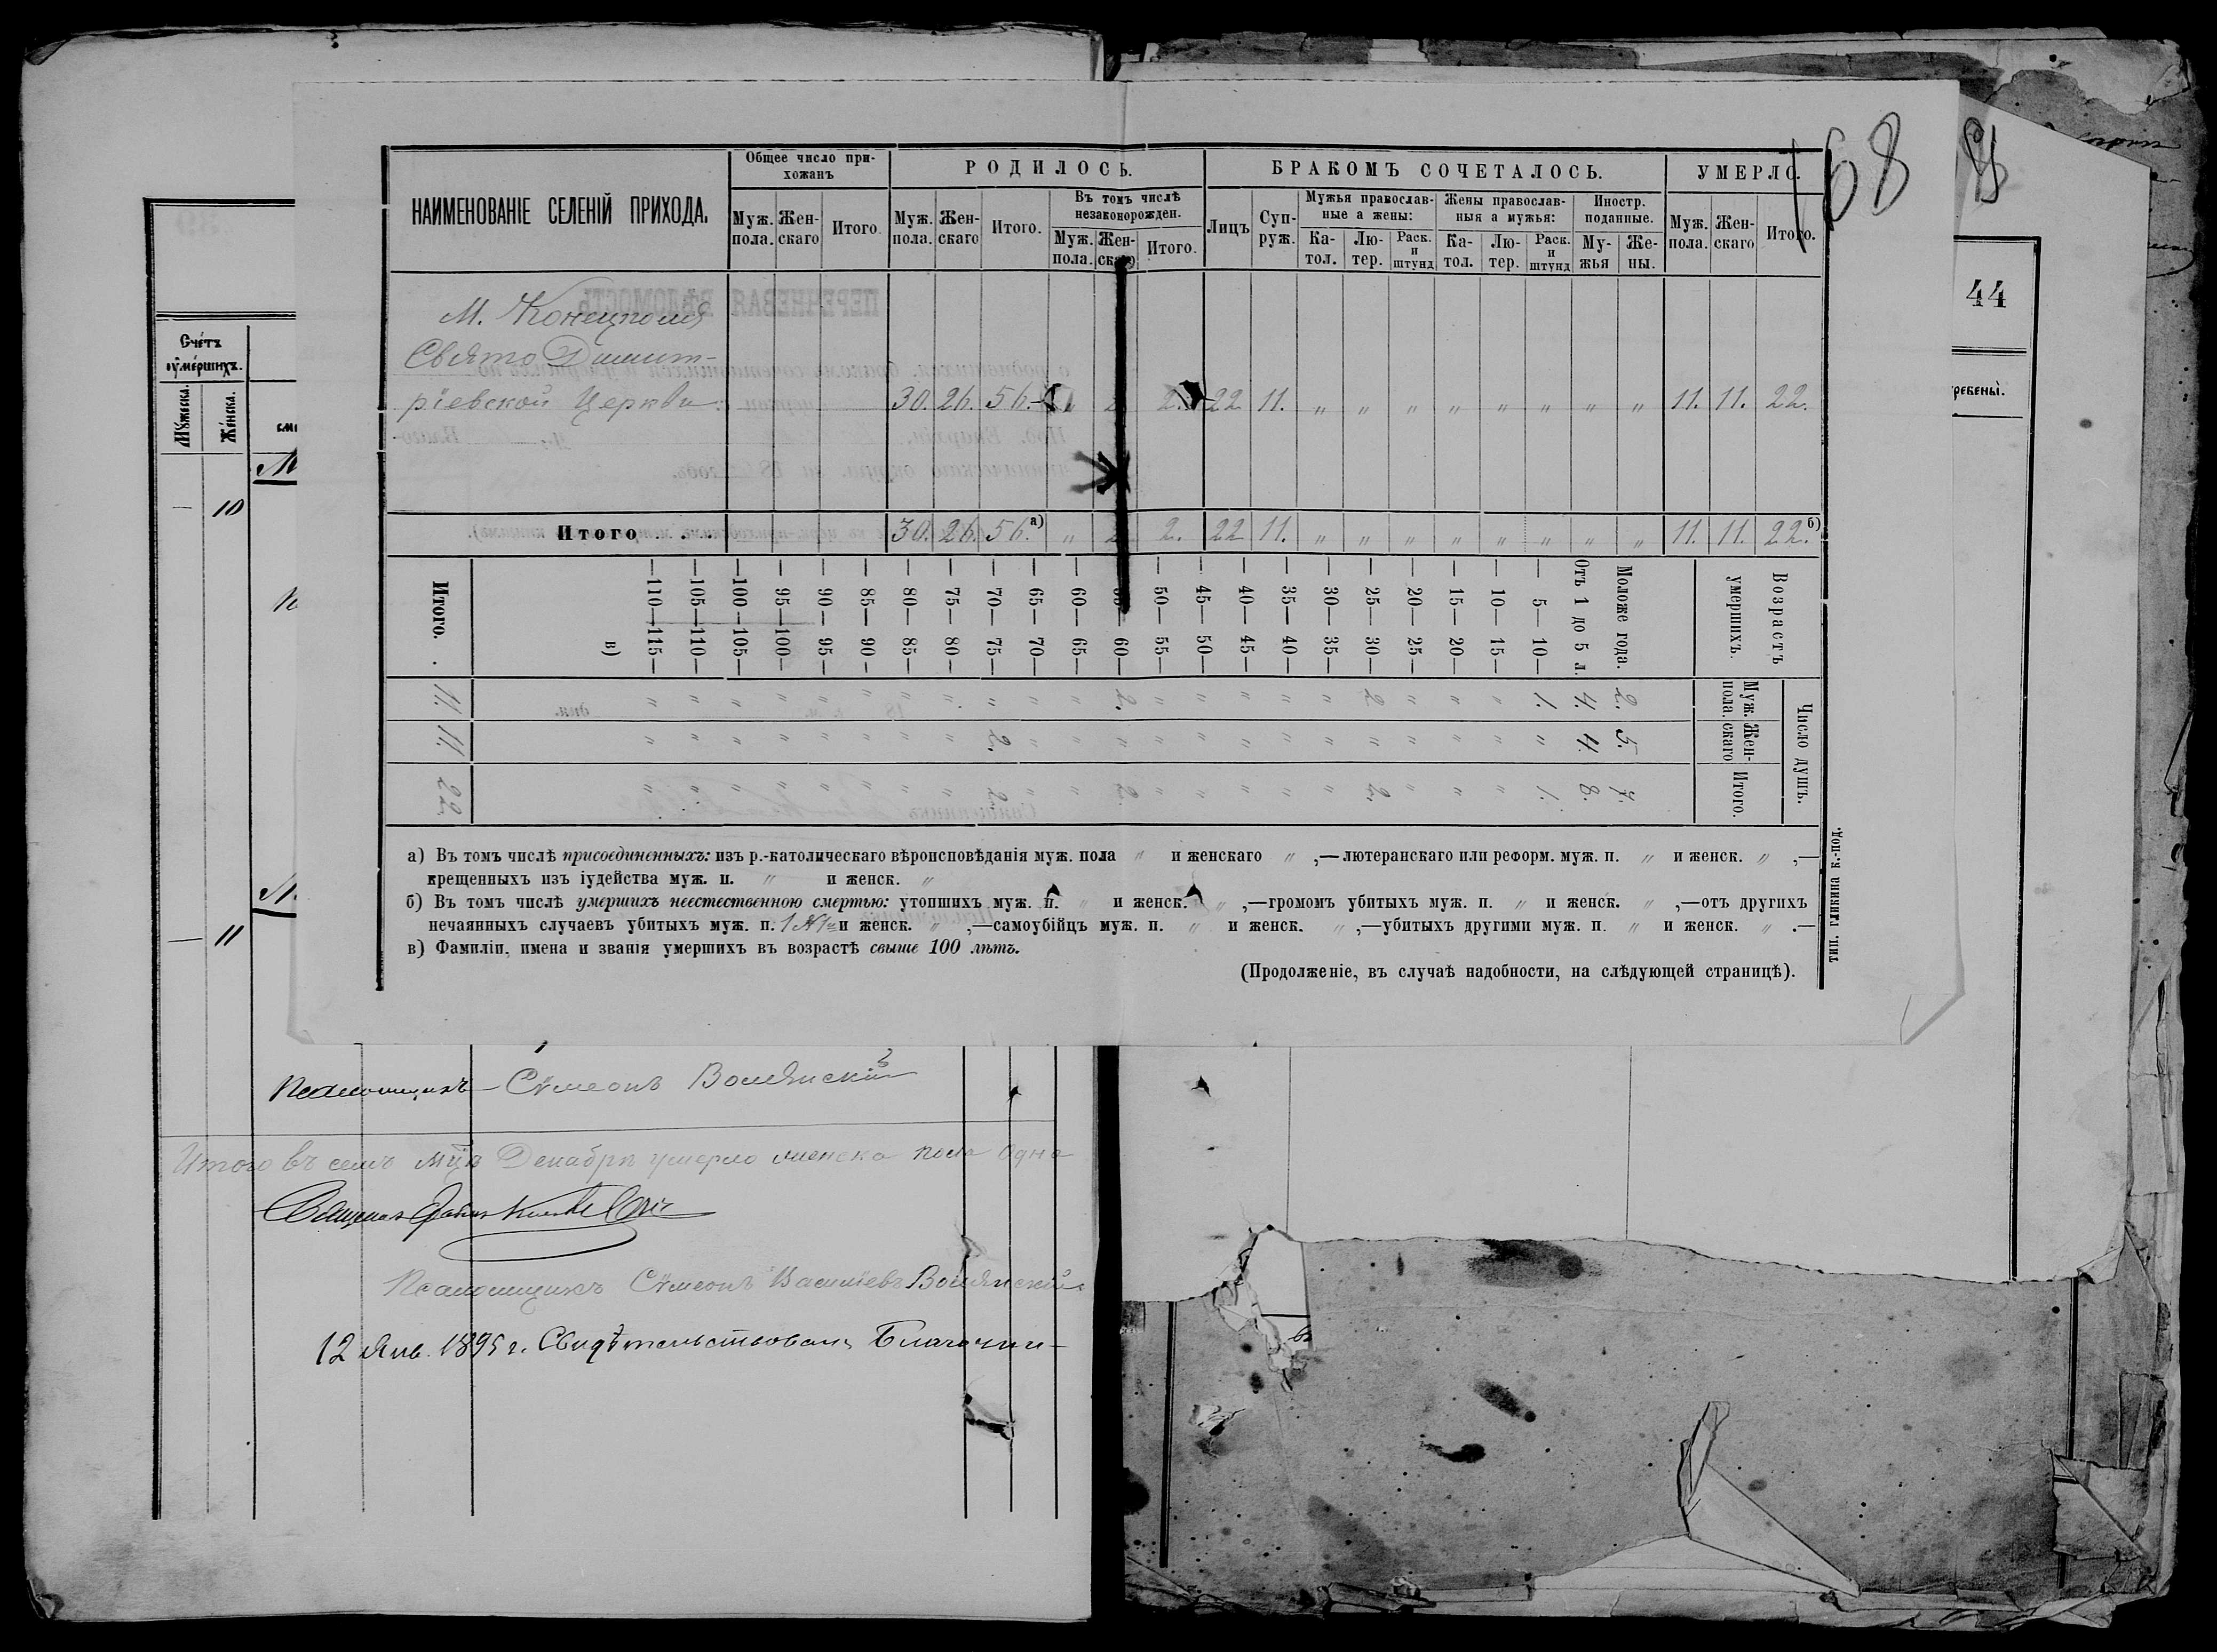 168
44
НАИМЕНОВАНІЕ СЕЛЕНІЙ ПРИХОДА.
Общее число при-
хожанъ
Муж. пола. Жен-скаго Итого.
РОДИЛОСЬ.
Муж. пола. Жен-скаго Итого.
Въ томъ числѣ
незаконорожден.
Муж. пола. Жен-скаго Итого.
БРАКОМЪ СОЧЕТАЛОСЬ.
Лицъ Суп-руж.
Мужья православ-
ные а жены:
Ка-тол. Лю-тер. Раск. и штунд
Жены православ-
ныя а мужья:
Ка-тол. Лю-тер. Раск. и штунд
Иностр.
поданные.
Му-жья Же-ны.
УМЕРЛО.
Муж. пола. Жен-скаго Итого.
М. Конецполя
Свято Димит-
ріевской Церкви 30. 26. 56. „ 2. 2. 22 11. „ „ „ „ „ „ „ „ 11. 11. 22.
Итого . . . 30. 26. 56.а) „ 2. 2. 22 11. „ „ „ „ „ „ „ „ 11. 11. 22.б)
Возрастъ умершихъ. Моложе года. Отъ 1 до 5 л. 5—10— —10—15— —15—20— —20—25— —25—30— —30—35— —35—40— —40—45— —45—50— —50—55— —55—60— —60—65— —65—70— —70—75— —75—80— —80—85— —85—90— —90—95— —95—100— —100—105— —105—110— —110—115— в) Итого.
Число душъ.
Муж. пола. 2. 4. 1. „ „ „ 2. „ „ „ „ „ 2. „ „ „ „ „ „ „ „ „ „ „ 11.
Жен-скаго 5. 4. „ „ „ „ „ „ „ „ „ „ „ „ „ 2. „ „ „ „ „ „ „ „ 11.
Итого. 7. 8. 1. „ „ „ 2. „ „ „ „ „ 2. „ „ 2. „ „ „ „ „ „ „ „ 22.
а) Въ томъ числѣ присоединенныхъ: изъ р.-католическаго вѣроисповѣданія муж. пола „ и женскаго „ ,—лютеранскаго или реформ. муж. п. „ и женск. „ ,—
крещенныхъ изъ іудейства муж. п. „ и женск. „
б) Въ томъ числѣ умершихъ неестественною смертью: утопшихъ муж. п. „ и женск. „ ,—громомъ убитыхъ муж. п. „ и женск. „ ,—отъ другихъ
нечаянныхъ случаевъ убитыхъ муж. п. 1 и женск. „ ,—самоубійцъ муж. п. „ и женск. „ ,—убитыхъ другими муж. п. „ и женск. „ .—
в) Фамиліи, имена и званія умершихъ въ возрастѣ свыше 100 лѣтъ.
(Продолженіе, въ случаѣ надобности, на слѣдующей страницѣ).
тип. гликина к.-под.
Счетъ
оумершихъ.
Мужеска. Женска.
— 10
— 11
Псаломщикъ Сѵмеонъ Волянскій
Итого въ семъ мцѣ Декабрѣ умерло женска пола одна
Псаломщикъ Сѵмеонъ Василіевъ Волянскій
12 Янв. 1895 г. Свидѣтельствовалъ Благочин-